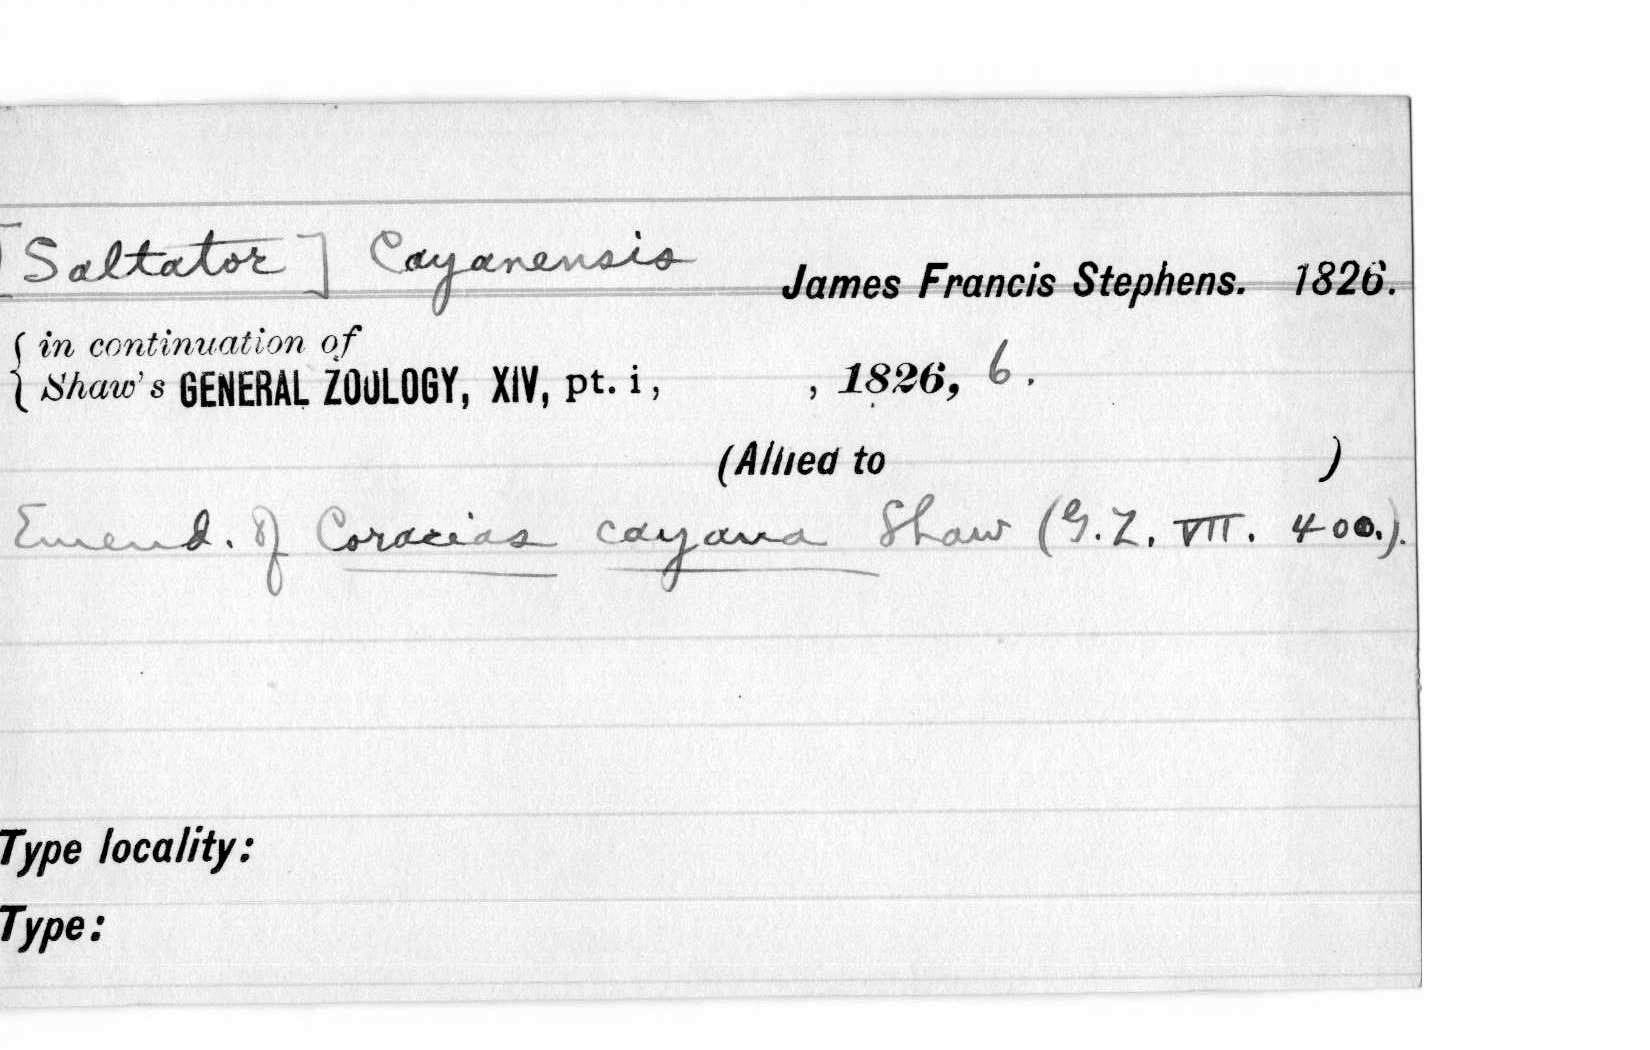 [Saltator] Cayanensis
James Francis Stephens. 1826.
{ in continuation of
Shaw's GENERAL ZOOLOGY, XIV, pt. i, , 1826, 6.
(Allied to )
Emend. of Coracias cayana Shaw (G.Z. VII. 400.).
Type locality:
Type: